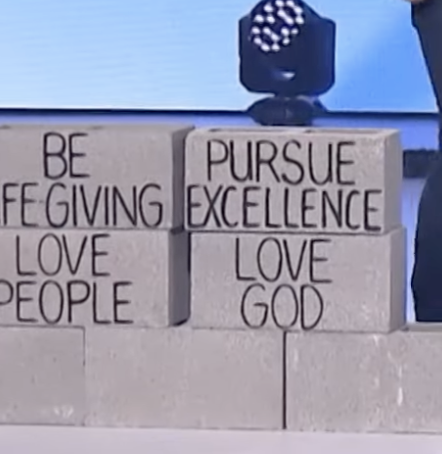 BE
FE GIVING
PURSUE
EXCELLENCE
LOVE
PEOPLE
LOVE
GOD